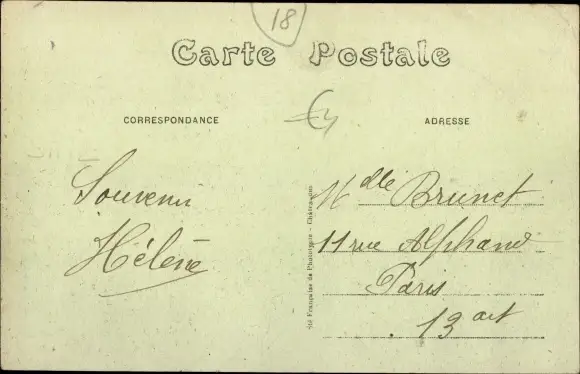 18
Carte Postale
CORRESPONDANCE
ADRESSE
Souvenir
Hélène
Mdlle Brunet
11 rue Alphand
Paris
13 art
Sté Française de Phototypie - Châteaudun